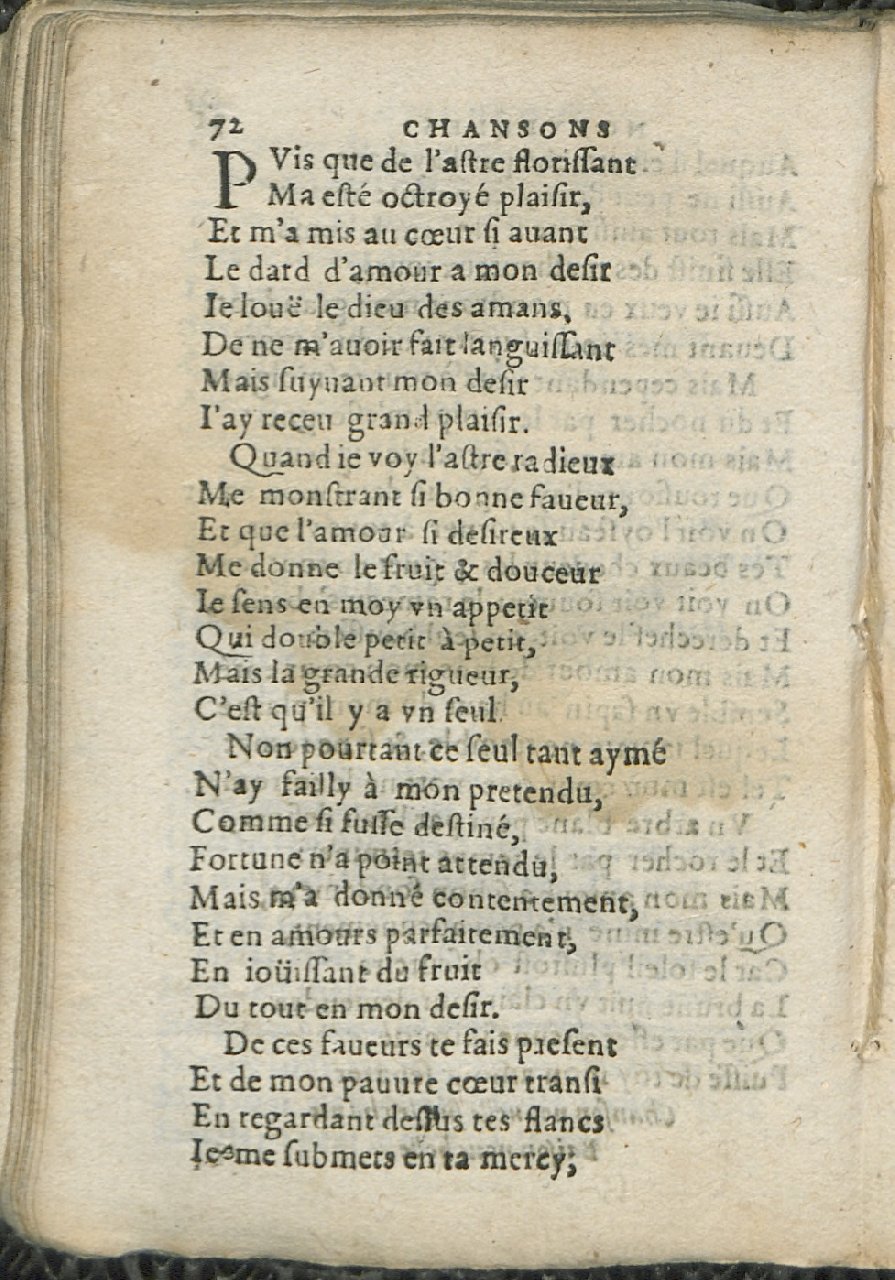 72 CHANSONS
PVis que de l'aſtre floriſſant
Ma eſté octroyé plaiſir,
Et m'a mis au cœur ſi auant
Le dard d'amour a mon deſir
Ie louë le dieu des amans,
De ne m'auoir fait languiſſant
Mais ſuyuant mon deſir
I'ay receu grand plaiſir.
Quand ie voy l'aſtre radieux
Me monſtrant ſi bonne faueur,
Et que l'amour ſi deſireux
Me donne le fruit & douceur
Ie ſens en moy vn appetit
Qui double petit à petit,
Mais la grande rigueur,
C'eſt qu'il y a vn ſeul.
Non pourtant ce ſeul tant aymé
N'ay failly à mon pretendu,
Comme ſi fuſſe deſtiné,
Fortune n'a point attendu,
Mais m'a donné contentement,
Et en amours parfaitement,
En ioüiſſant du fruit
Du tout en mon deſir.
De ces faueurs te fais preſent
Et de mon pauure cœur tranſi
En regardant deſſus tes flancs
Ie me ſubmets en ta mercy,